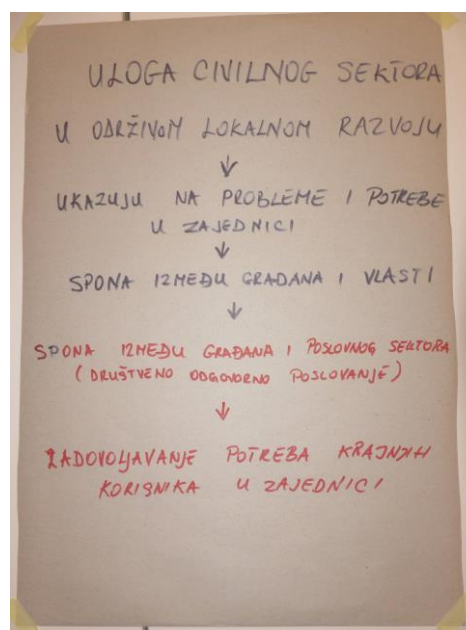 ULOGA CIVILNOG SEKTORA
U ODRŽIVOM LOKALNOM RAZVOJU
↓
UKAZUJU NA PROBLEME I POTREBE
U ZAJEDNICI
↓
SPONA IZMEĐU GRAĐANA I VLASTI
↓
SPONA IZMEĐU GRAĐANA I POSLOVNOG SEKTORA
(DRUŠTVENO ODGOVORNO POSLOVANJE)
↓
ZADOVOLJAVANJE POTREBA KRAJNJIH
KORISNIKA U ZAJEDNICI